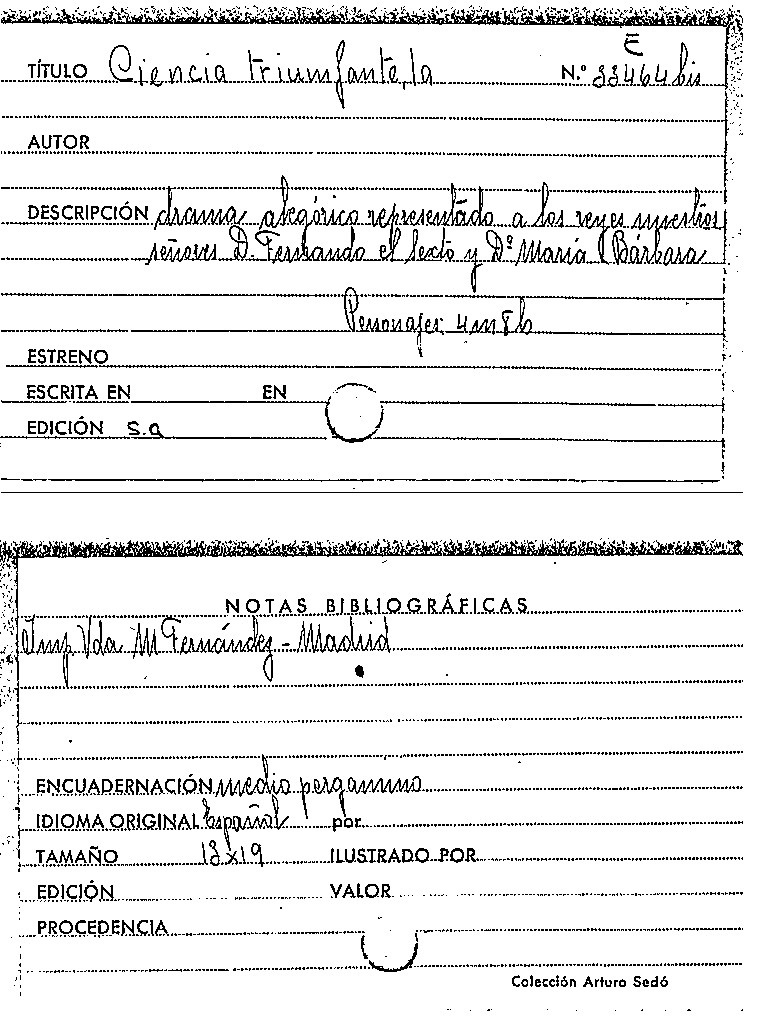 E
TÍTULO Ciencia triumfante, la N.º 33464 bis
AUTOR
DESCRIPCIÓN drama alegórico representado a los reyes nuestros
señores D. Fernando el Sexto y Dª María Bárbara
Personajes: 4m 8h
ESTRENO
ESCRITA EN EN
EDICIÓN s.a
NOTAS BIBLIOGRÁFICAS
Imp Vda M Fernández - Madrid
ENCUADERNACIÓN medio pergamino
IDIOMA ORIGINAL Español por
TAMAÑO 13x19 ILUSTRADO POR
EDICIÓN VALOR
PROCEDENCIA
Colección Arturo Sedó